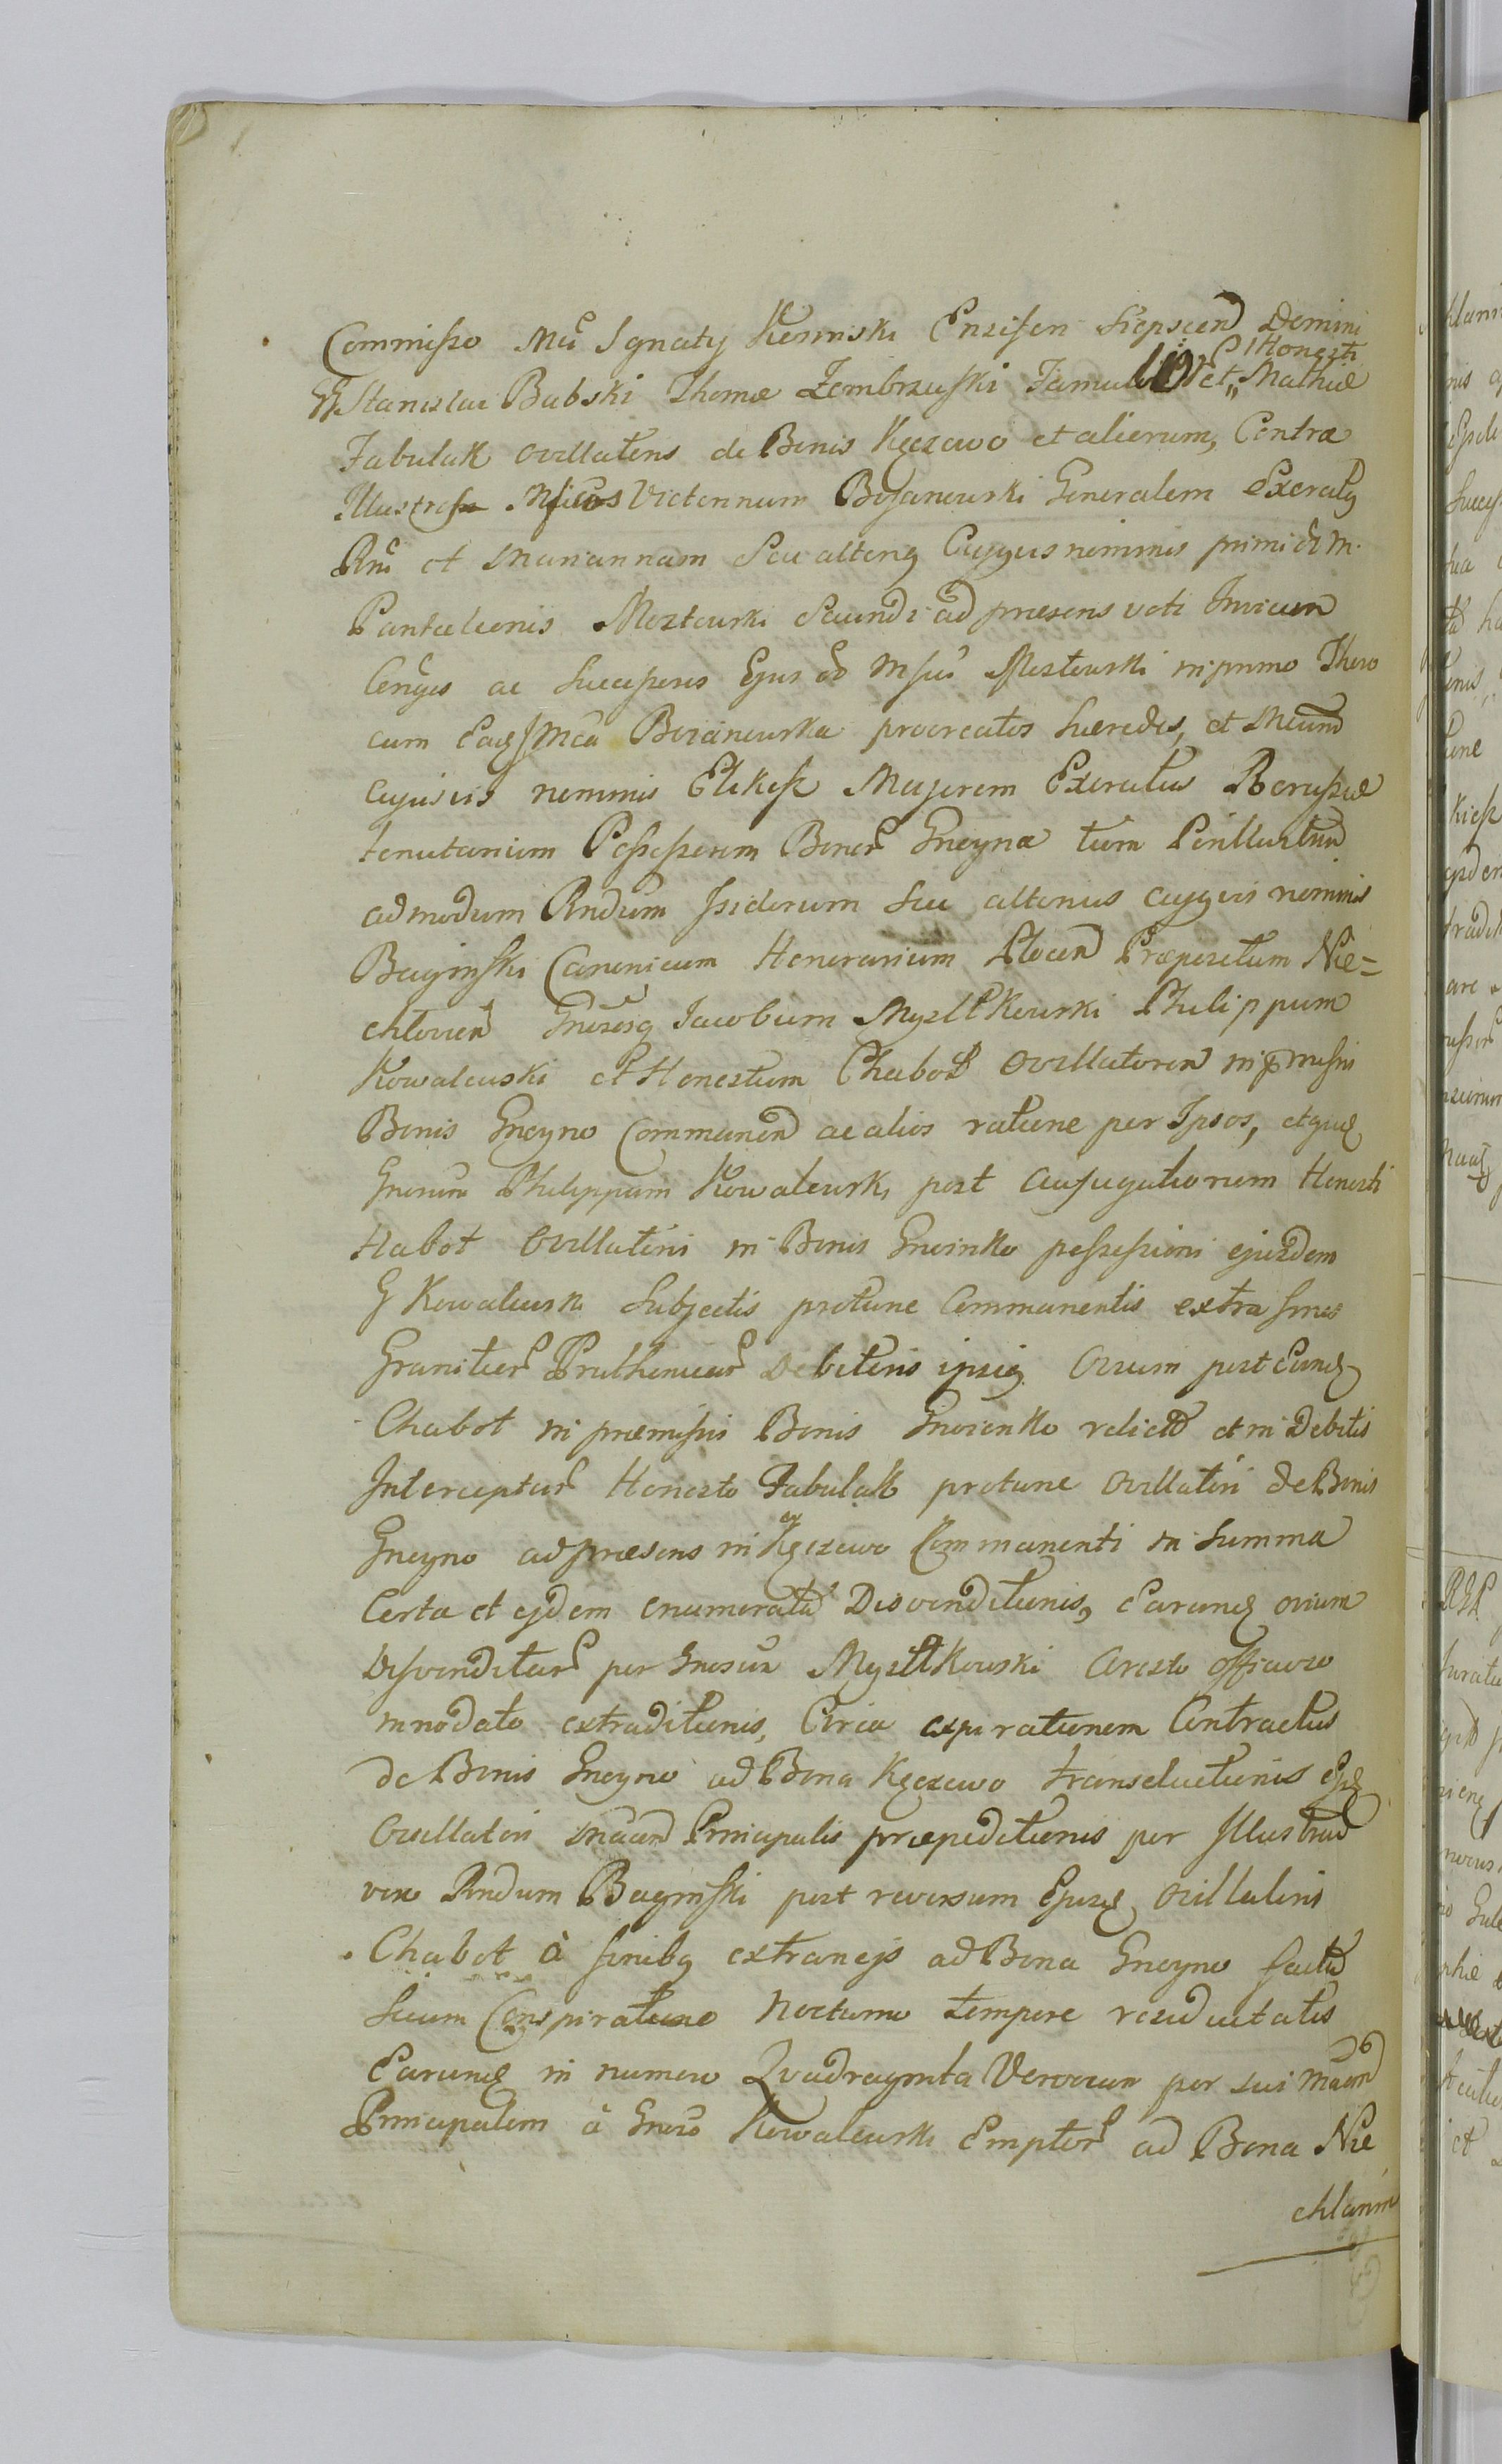 Commisso Mci Ignatij Kiśinski Ensiferi Siepscen Domini
GG Stanislai Babski Thomæ Zembrzuski Famulor et Honesti Mathiæ
Fabulak ovillatoris de Bonis Kęczewo et aliorum, Contra
Illustres Victorinum Bojanowski Generalem Exercitq
Rni et Mariannam Seu alterig Cujqvis nominis primi
Pantaleonis Moztowski Secundi ad præsens voti Invicem
Conjges ac Successores Ejus Moztowski in primo Thoro
cum Eadg Mca Bojanowska procreatos hæredes, et Mcum
cujusvis nominis Elkiesz Majorem Exercitus Borussiæ
tenutarium Possessorem Bonor Gnoyna tum Perillustrem
admodum Rndum Isidorum Seu alterius cujqvis nominis
Baginski Canonicum Honorarium Plocen Præpositum Nie=
chlonien Gnososq Jacobum Myzltkowski Philippum
Kowalewski et Honestum Chabot Ovillatorem in præmissis
Bonis Gnoyno Commanen ac alios ratione per Ipsos, et
Gnosum Philippum Kowalewski post Honesti
Habot Ovillatoris in Bonis Gnoinko possessioni ejusdem
G Kowalewski Subjectis protunc Commanentis extra fines
Granitier Pruthenicar Debitoris ipsig Ovium post Eundg
Chabot in præmissis Bonis Gnoienko relictar et in Debitis
Interceptar Honesto Fabulak protunc Ovillatori de Bonis
Gnoyno ad præsens in Kęczewo Commanenti in Summa
Certa et ejdem enumerata Disvenditionis, Earundg ovium
Disvenditar per Gnosum Myzltkowski Aresto officioso
innodato extraditionis, Circa expirationem Contractus
de Bonis Gnoyno ad Bona Kęczewo transductionis
Ovillatori Principalis præpeditionis per Illustrem
vero Rndum Baginski post reversum Ejusdg Ovillatoris
Chabot à finibq extraneis ad Bona Gnoyno facta
Secum Conspiratione Nocturno tempore
Earundg in numero Qvadraginta Vervecum per sui
Principalem à Gnoso Kowalewski Emptor ad Bona Nie
chlonin